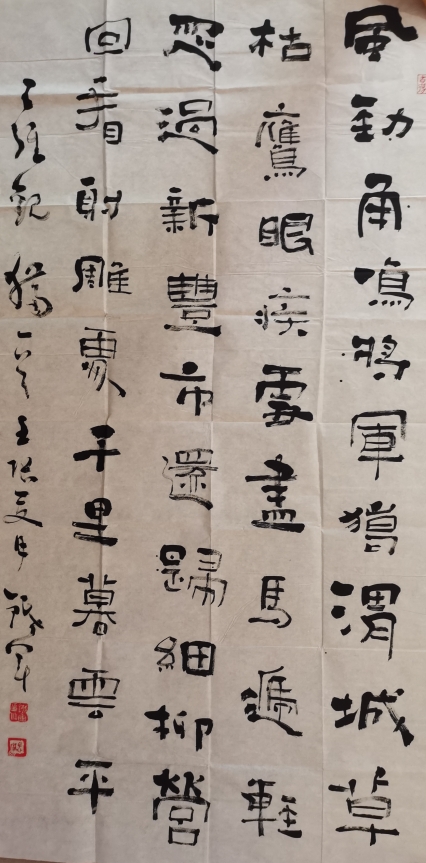 風勁角鳴將軍獵渭城草
枯鷹眼疾雪盡馬遞輕
忽過新豐市還歸細柳營
回看射雕處千里暮雲平
王維觀獵 夏月